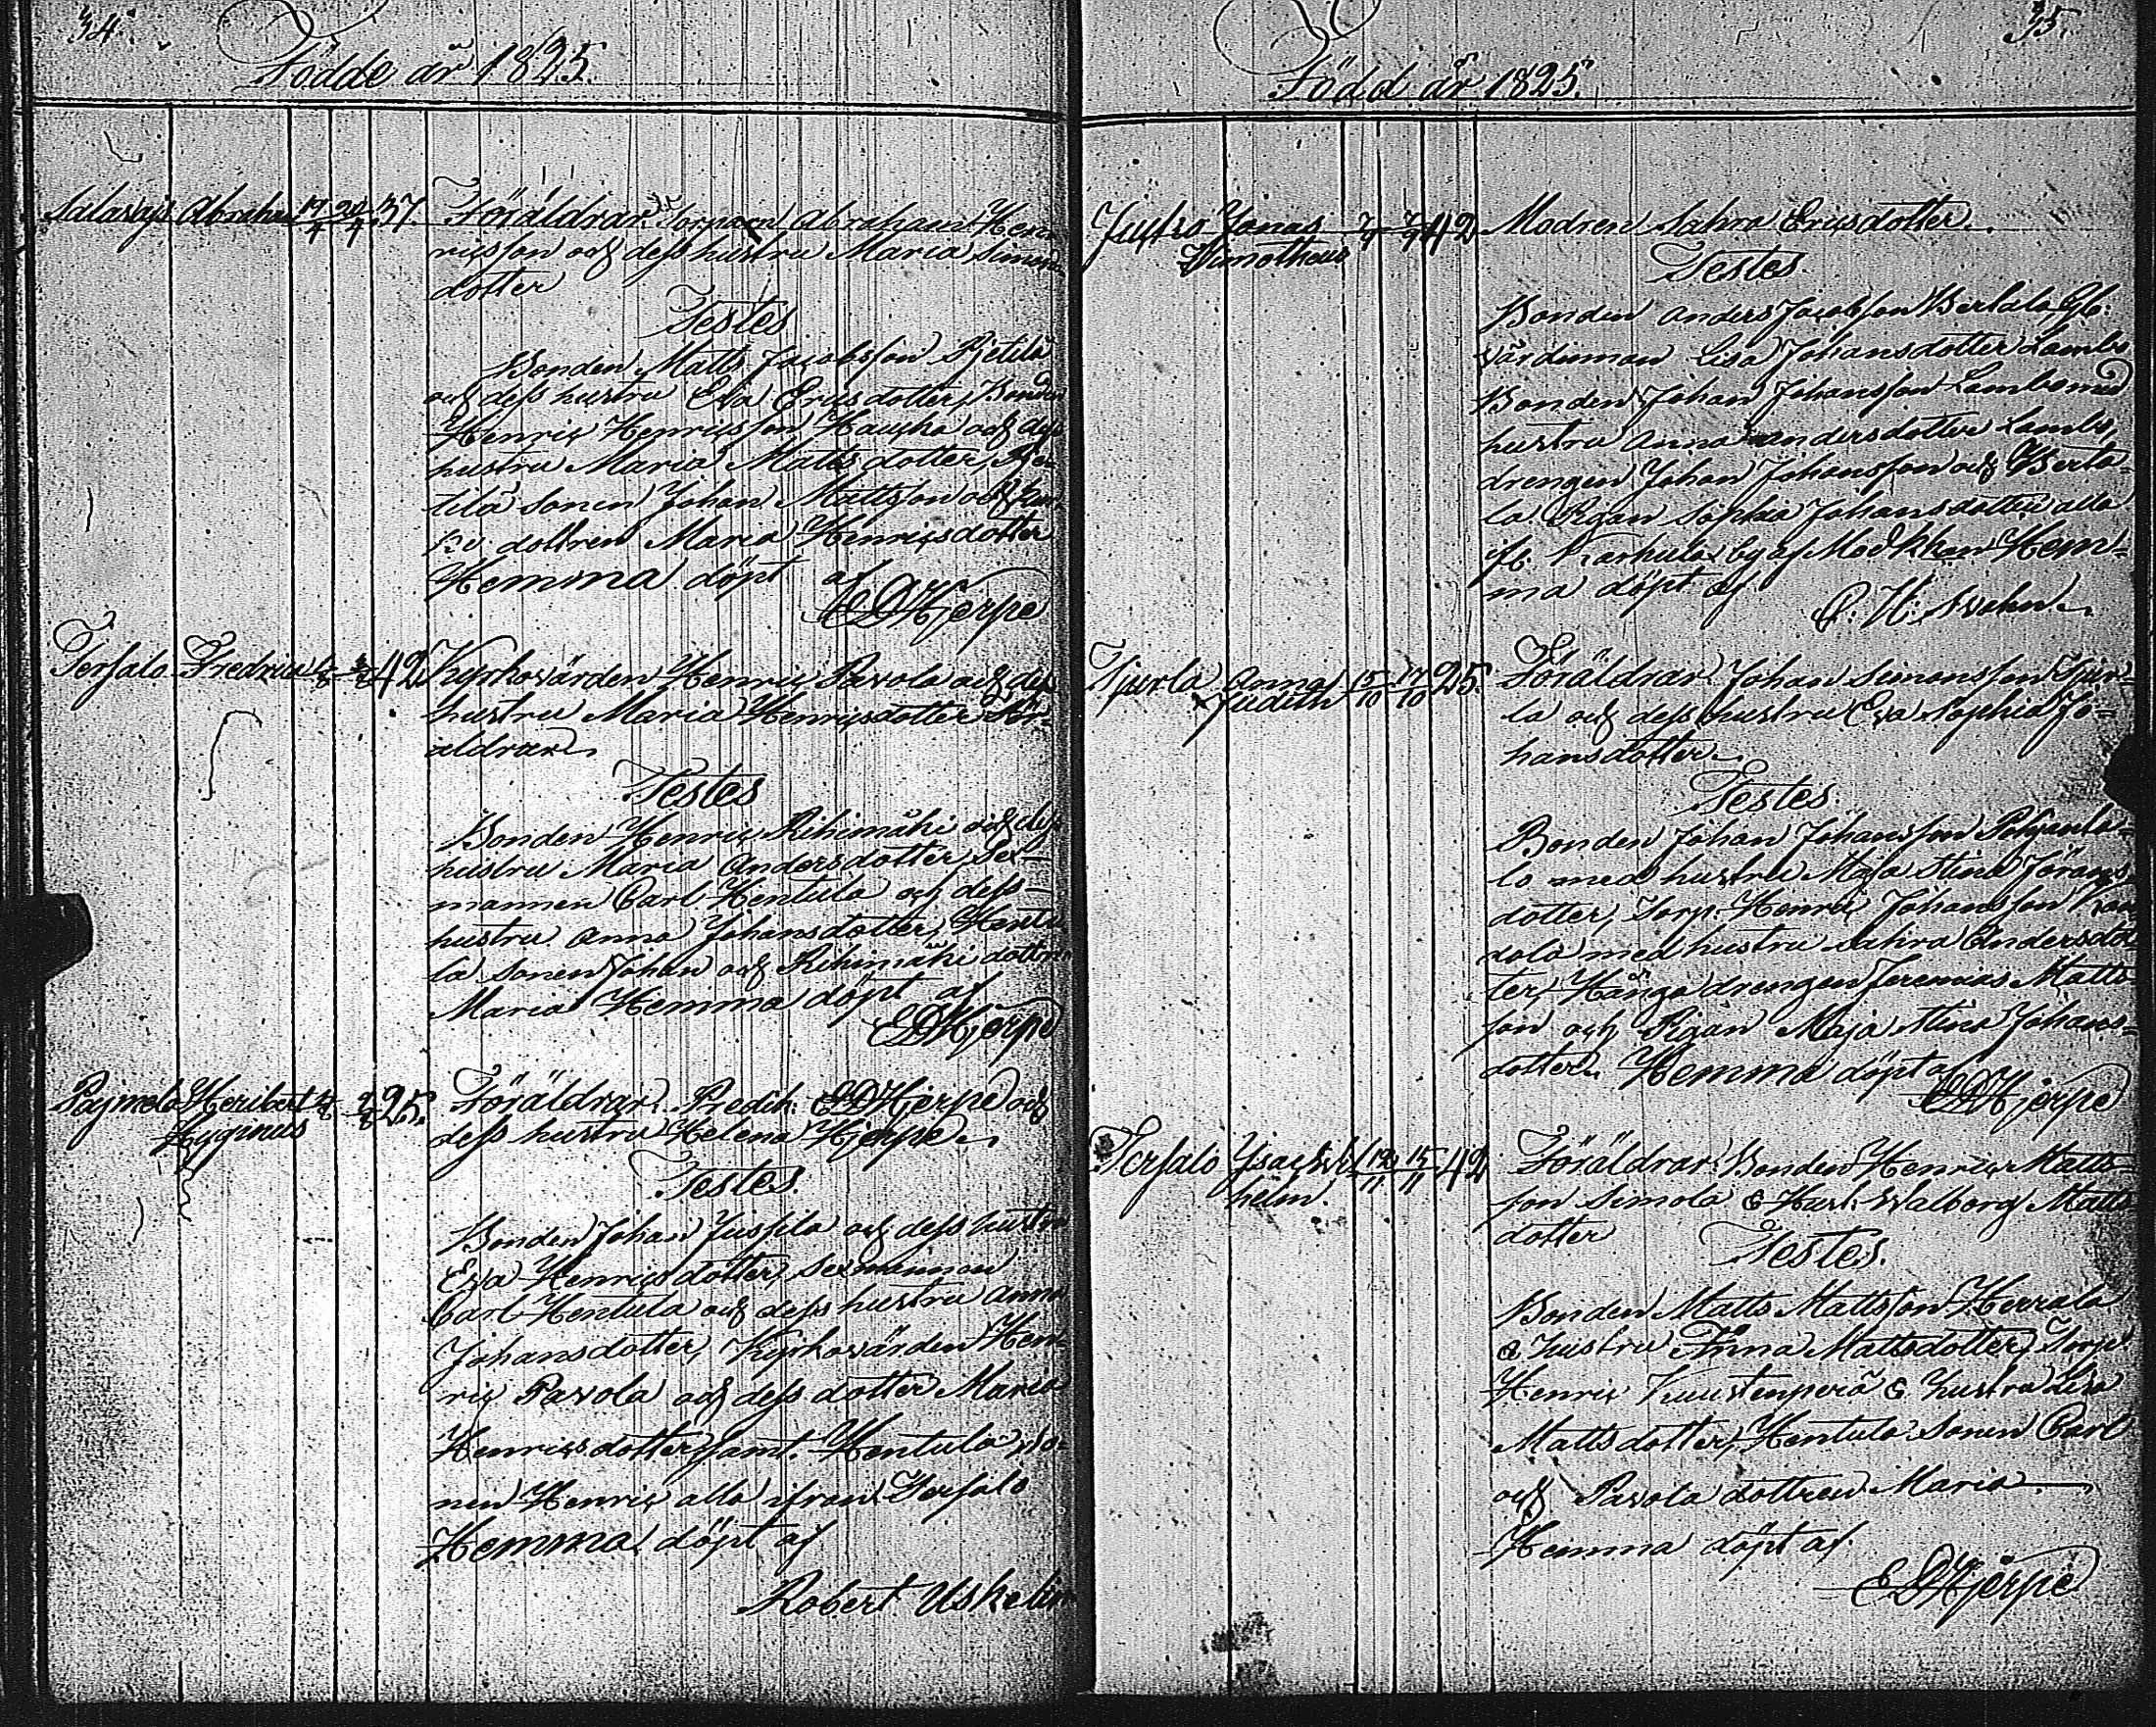 34.
Födde år 1825.
Abraham 17/4 20/4 37. Föräldrar Torparen Abraham Hen-
ricsson och dess hustru Maria Simons
dotter
Testes
Bonden Matts Jacobsson
och dess hustru Eva Ericsdotter, Bonden
Henric Henricsson och dess
hustru Maria Matts dotter,
tilä sonen Johan Mattsson och
dottren Maria Henricsdotter
Hemma döpt af
EDHjerpe
Terfalo Fredrica 42. Kyrkovärden Henric Pavola och dess
hustru Maria Henricsdotter För-
äldrar.
Testes
Bonden Henric Rihimäki och dess
hustru Maria Andersdotter, Sex-
mannen Carl Hentula och dess
hustru Anna Johansdotter, Hentu
la sonen Johan och Rihimäki dottren
Maria Hemma döpt af
EDHjerpe
Heribert 25. Föräldrar. Predik: EDHjerpe och
Hyginus dess hustru Helena Hjerpe.
Testes.
Bonden Johan Jussila och dess hustru
Eva Henricsdotter, Sexmannen
Carl Hentula och dess hustru Anna
Johansdotter, Kyrkovärden Hen-
ric Pavola och dess dotter Maria
Henricsdotter samt Hentula so-
nen Henric alla ifrån Terfalo
Hemma döpt af
Robert Uskelin
35.
Född år 1825.
Jonas 7/9 42 Modren Sahra Ericsdotter.
Timotheus
Testes.
Bonden Anders Jacobsson Bertala,
värdinnan Lisa Johansdotter Lambo
Bonden Johan Johansson Lambo med
hustru Anna Andersdotter Lambo,
drengen Johan Johansson och Berta-
la Pigan Sophia Johansdotter alla
fr. Karhula by af Hem-
ma döpt af
Anna 15/10 17/10 25. Föräldrar Johan Simonsson
Judith la och dess hustru Eva Sophia Jo-
hansdotter.
Testes.
Bonden Johan Johansson
lo med hustru Maja Stina Jörans
dotter, Torp. Henric Johansson
dola med hustru Sahra Andersdot
ter, Hånga drengen Jeremias Matts
son och Pigan Maja Stina Johans-
dotter. Hemma döpt af
EDHjerpe
Terfalo Ysac Wil 12/11 15/11 42 Föräldrar Bonden Henric Matts
helm. son Simola & Hust. Walborg Matts
dotter
Testes.
Bonden Matts Mattsson Herrala
& hustru Anna Mattsdotter, Torp.
Henric Kuustenperä & hustru Lisa
Mattsdotter, Hentula Sonen Carl
och Pavola dottren Maria.
Hemma döpt af.
EDHjerpe